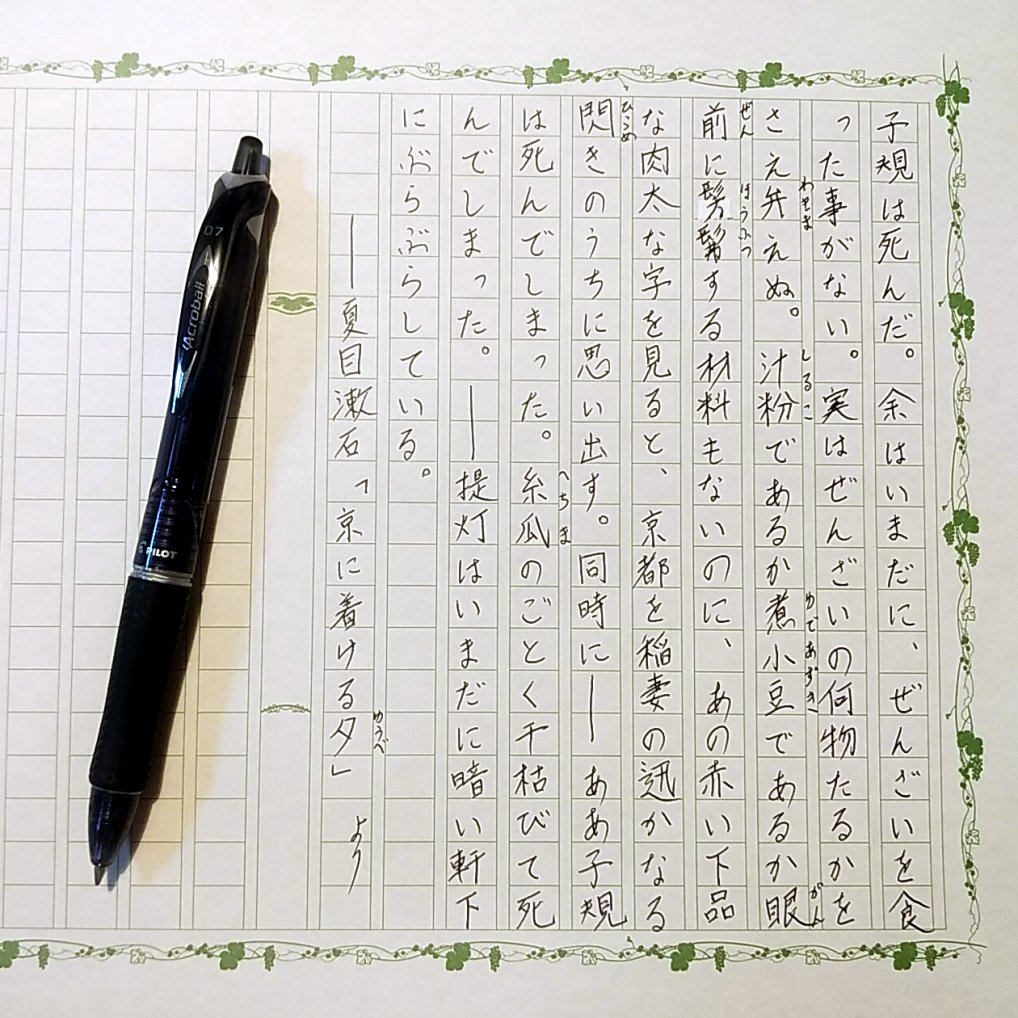 子規は死んだ。余はいまだに、ぜんざいを食
った事がない。実はぜんざいの何物たるかを
わきま しるこ ゆであずき がん
さえ弁えぬ。汁粉であるか煮小豆であるか眼
ぜん ほうふつ
前に髣髴する材料もないのに、あの赤い下品
な肉太な字を見ると、京都を稲妻の迅かなる
ひらめ
閃きのうちに思い出す。同時に――ああ子規
へちま
は死んでしまった。糸瓜のごとく干枯びて死
んでしまった。――提灯はいまだに暗い軒下
にぶらぶらしている。
ゆうべ
――夏目漱石「京に着ける夕」 より
07
Acroball
PILOT